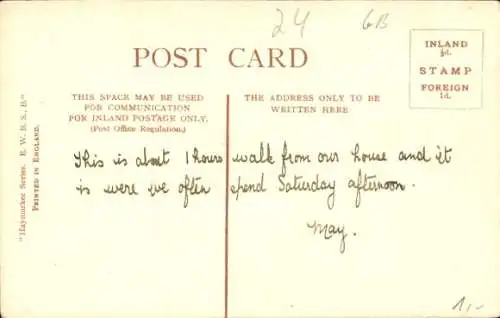 24 GB
POST CARD
INLAND
½d.
STAMP
FOREIGN
1d.
THIS SPACE MAY BE USED
FOR COMMUNICATION
FOR INLAND POSTAGE ONLY.
(Post Office Regulation.)
THE ADDRESS ONLY TO BE
WRITTEN HERE
This is about 1 hours walk from our house and it
is were we often spend Saturday afternoon.
May.
"Haymarket Series. E. W. B. S., B."
PRINTED IN ENGLAND.
1,-